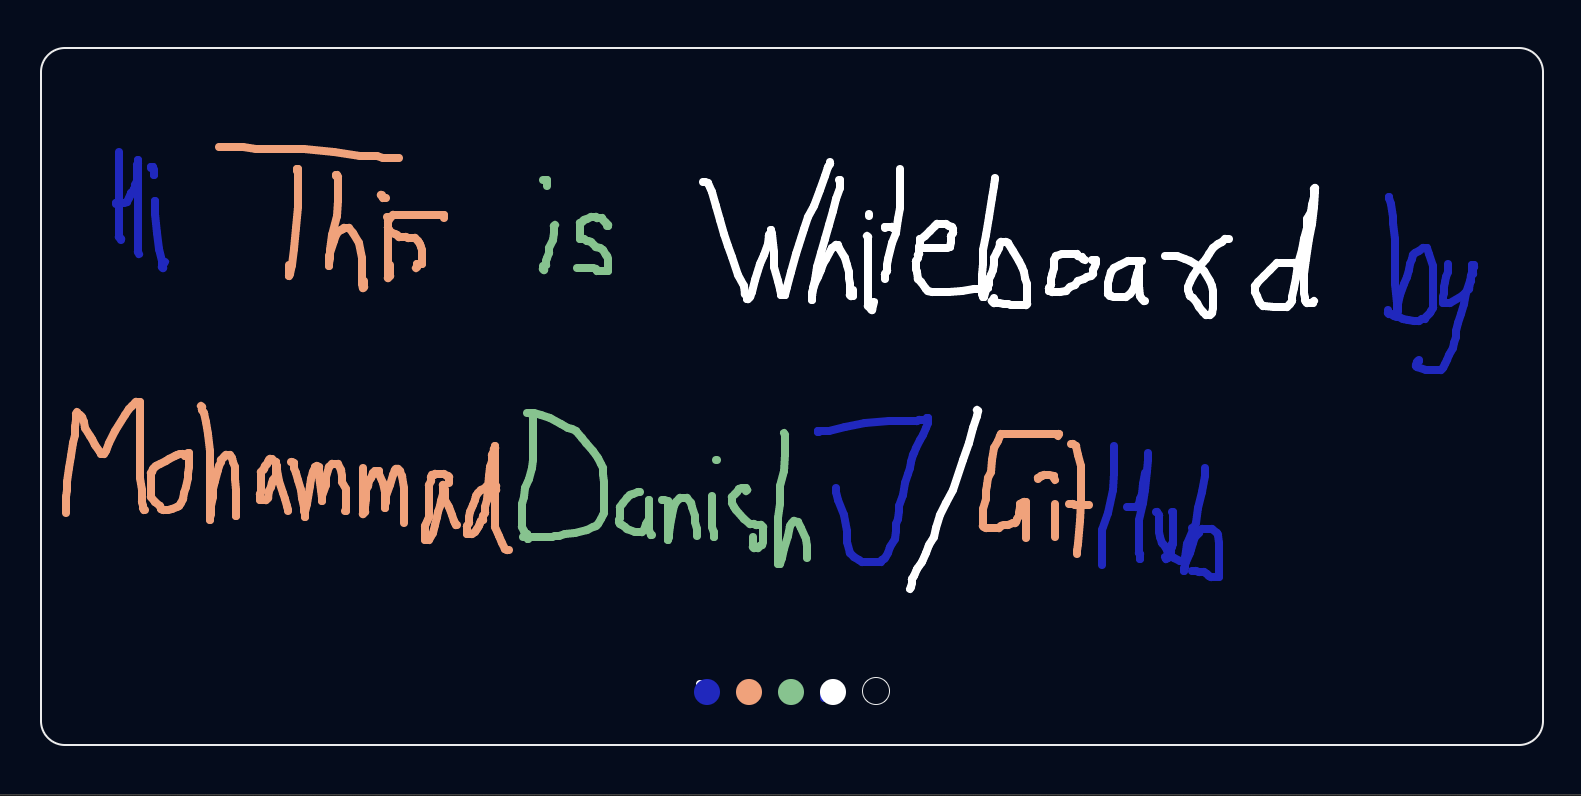 Hi This is Whiteboard by
MohammadDanishJ/GitHub